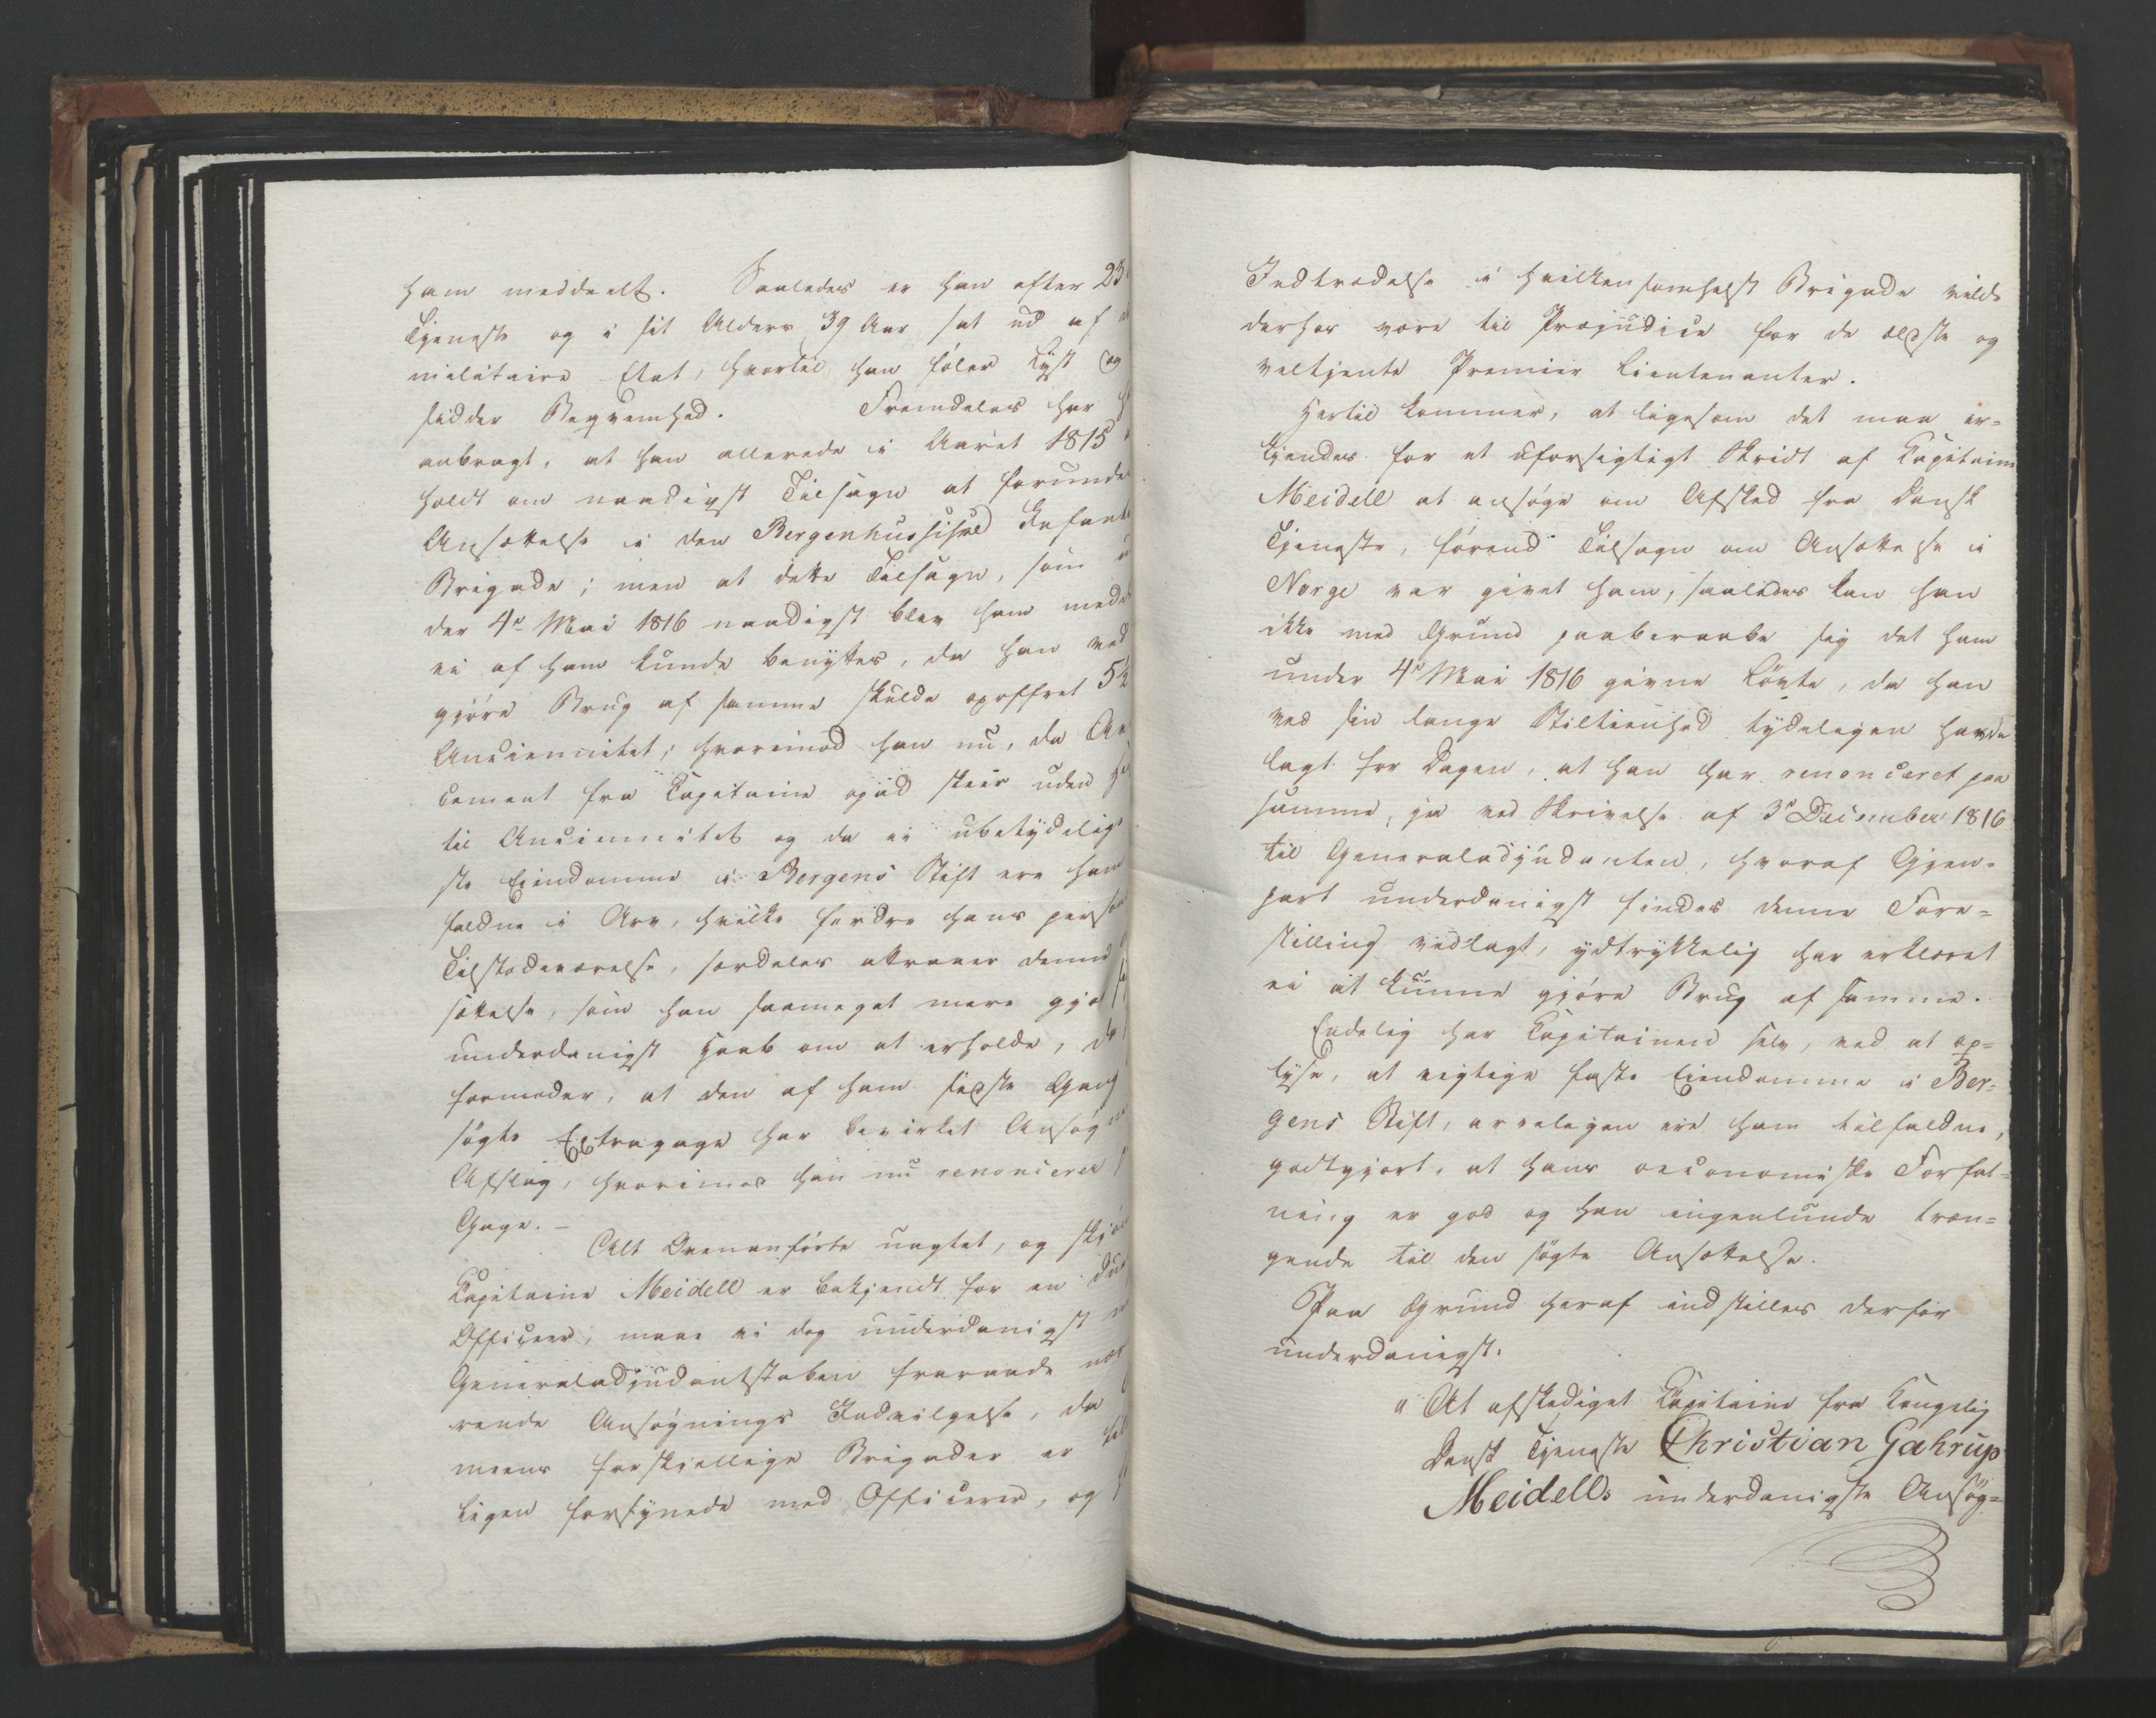 ham meddeelt. Saaledes er han efter 25
Tjeneste og i sit Alders 39 Aar sat ud af
militaire Etat, hvortil han føler Lyst og
sidder Beqvemhed. Fremdeles har
anbragt, at han allerede i Aaret 1815
holdt om naadigst Tilsagn at forunde
Ansættelse i den Bergenhusiske Infant
Brigade; men at dette Tilsagn, som
der 4de Mai 1816 naadigst blev ham medd
ei af ham kunde benyttes, da han ved
gjøre Brug af samme skulde opoffret 5½
Anciennitet; hvorimod han nu, da Av
cement fra Capitaine opad skeer uden
til Anciennitet og da ei ubetydelig
ste Eiendomme i Bergens Stift ere ham
faldne i Arv, hvilke fordre hans person
Tilstedeværelse, særdeles attraaer denne
sættelse, som han saameget mere gjør
underdanigst Haab om at erholde, da
formoder, at den af ham sidste Gang
søgte Extragage har bevirket Ansøgn
Afslag, hvorimod han nu renoncerer
Gage. –
Alt Ovenanførte uagtet, og skjøn
Capitaine Meidell er bekjendt for en du
Officeer, maae vi dog underdanigst
Generaladjudantstaben fraraade nær
rende Ansøgnings Indvilgelse, da
meens forskjellige Brigader er til
ligen forsynede med Officerer, og
Indtrædelse i hvilkensomhelst Brigade vilde
derhos være til Præjudice for de ældste og
veltjente Premier Lieutenanter.
Hertil kommer, at ligesom det maa er=
kjendes for et uforsigtigt Skridt af Capitaine
Meidell at ansøge om Afsked fra Dansk
Tjeneste, førend Tilsagn om Ansættelse i
Norge var givet ham, saaledes kan han
ikke med Grund paaberaabe sig det ham
under 4de Mai 1816 givne Løvte, da han
ved sin lange Stiltienhed tydeligen havde
lagt for Dagen, at han har renonceret paa
samme, ja ved Skrivelse af 3de December 1816
til Generaladjudanten, hvoraf Gjen=
part underdanigst findes denne Fore=
stilling vedlagt, ydtrykkelig har erklæret
ei at kunne gjøre Brug af samme.
Endelig har Capitainen selv, ved at op=
lyse, at vigtige faste Eiendomme i Ber=
gens Stift, arveligen ere ham tilfaldne,
godtgjort, at hans oeconomiske Forfat=
ning er god og han ingenlunde træn=
gende til den søgte Ansættelse.
Paa Grund heraf indstilles derfor
underdanigst:
"At afskediget Capitaine fra Kongelig
Dansk Tjeneste Christian Gahrup
Meidells underdanigste Ansøg=